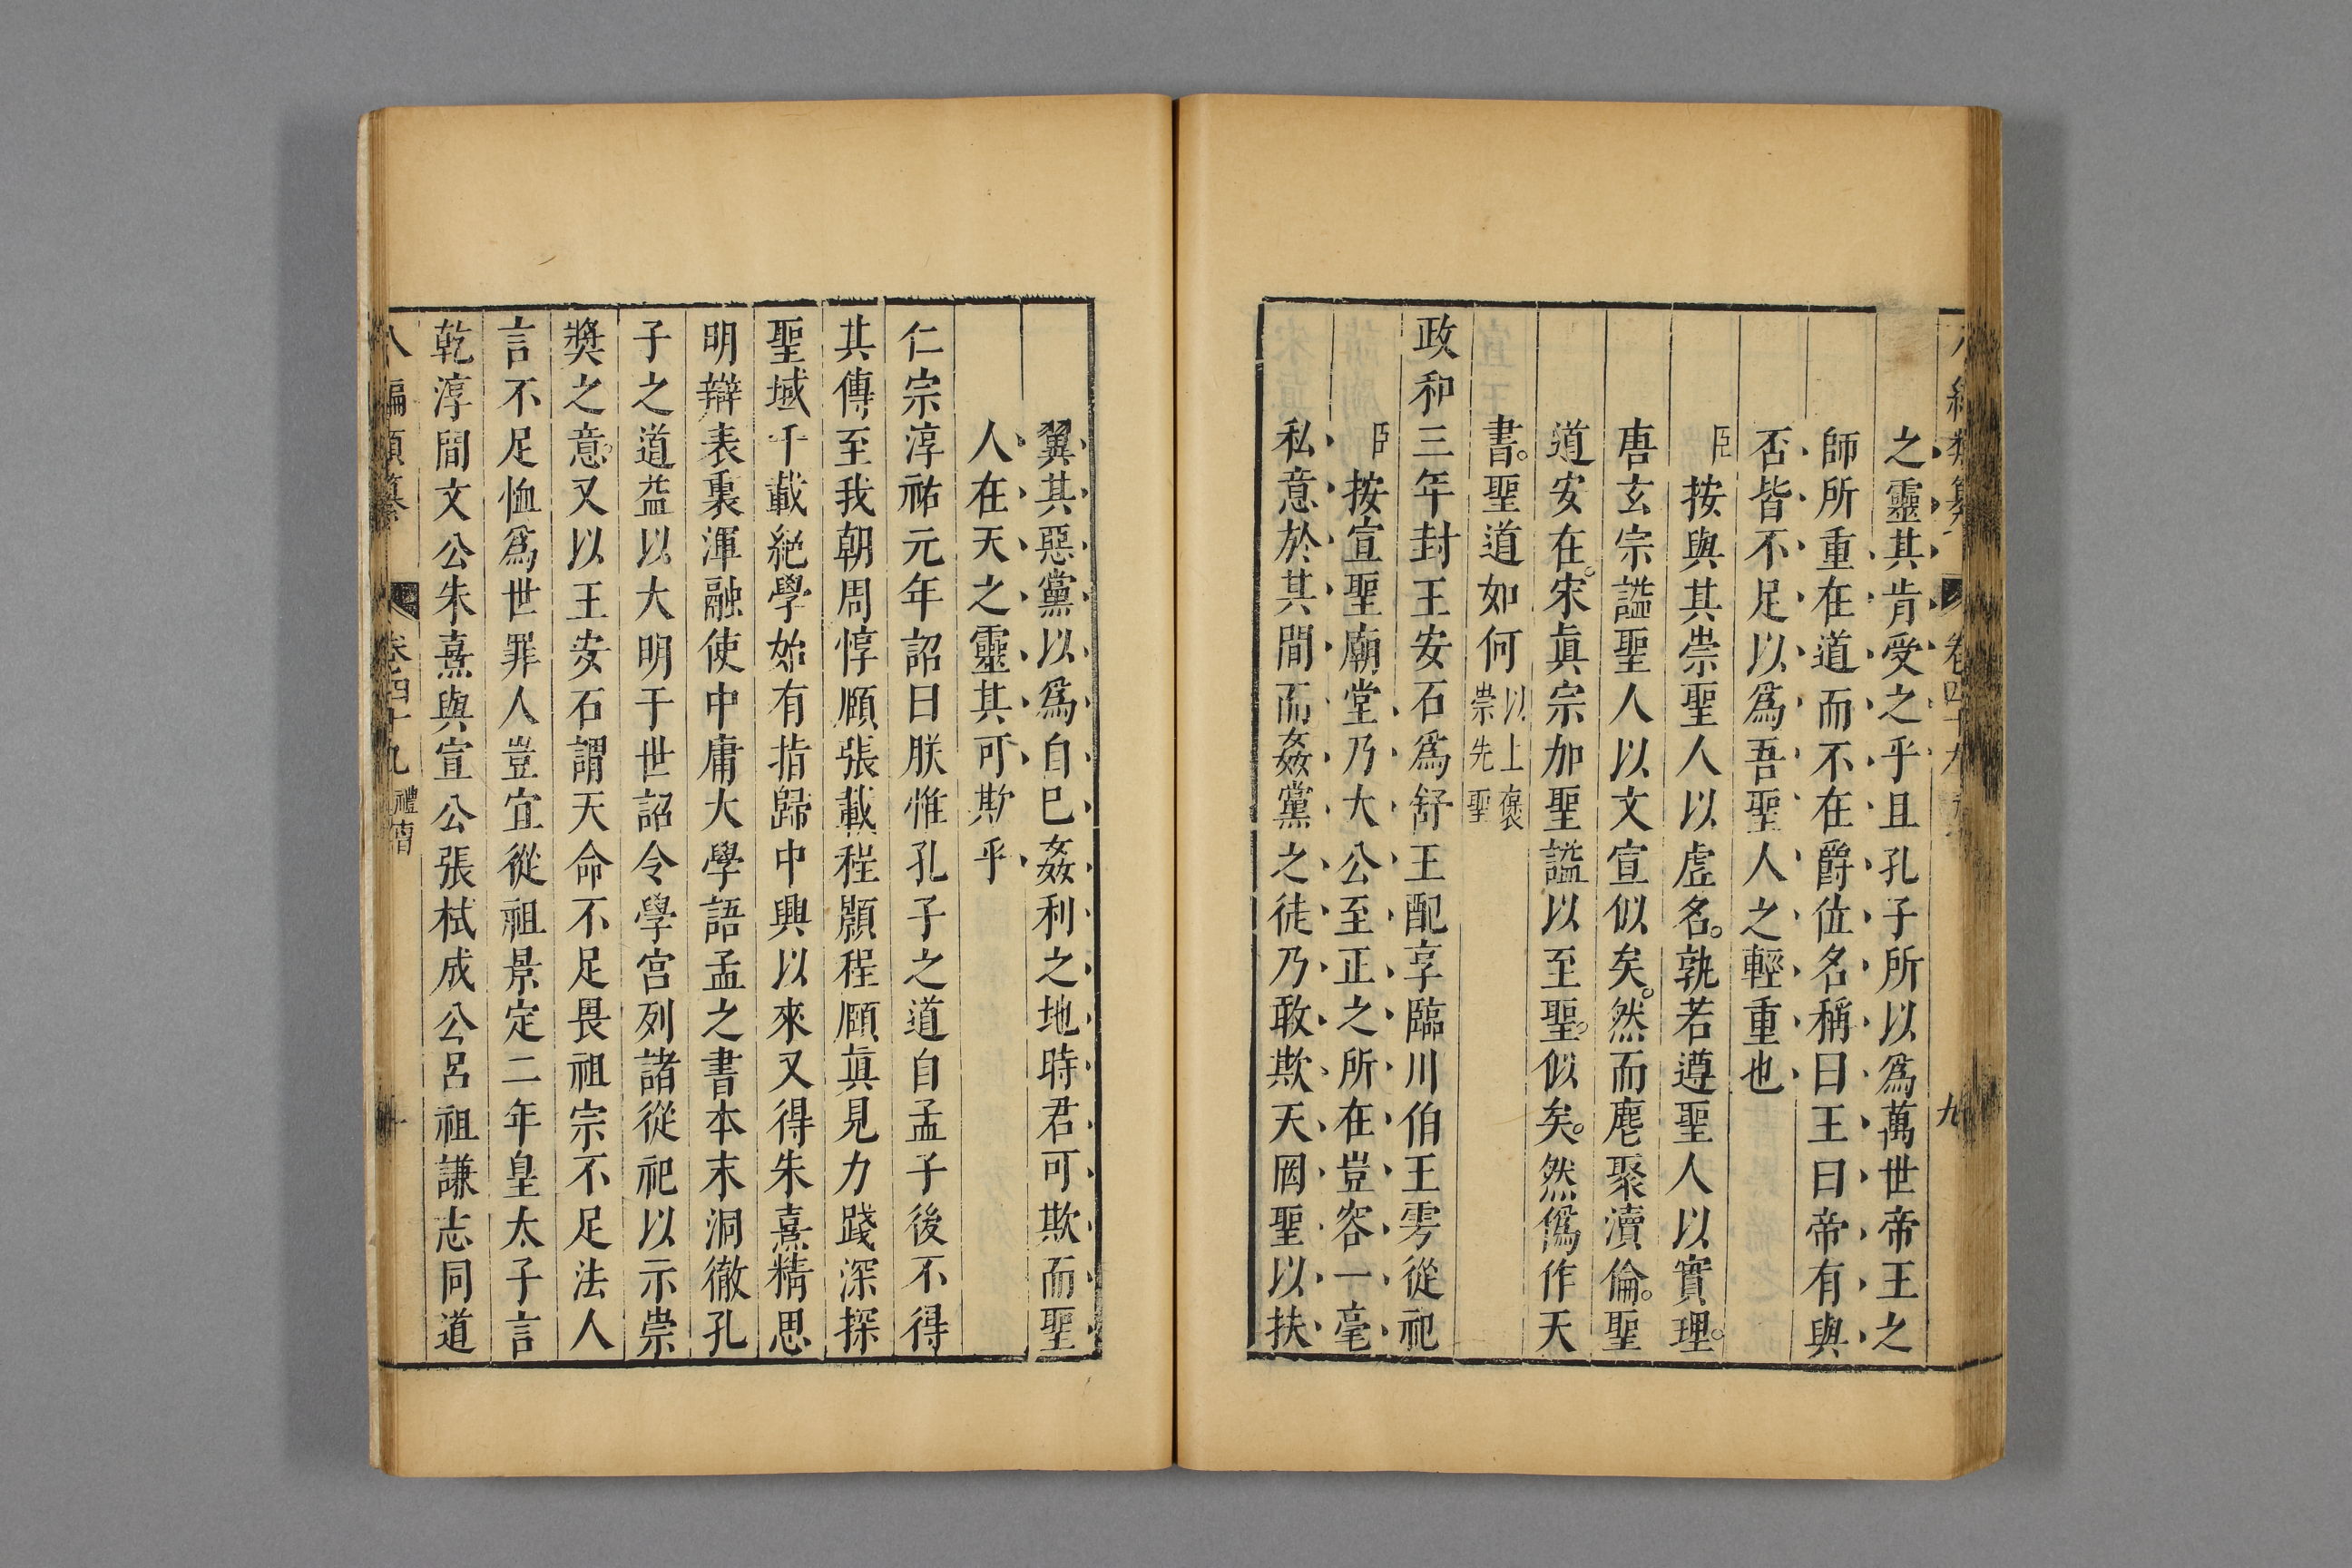 卷四十九
九
之靈其肯受之乎且孔子所以爲萬世帝王之
師所重在道而不在爵位名稱曰王曰帝有與
否皆不足以爲吾聖人之輕重也
臣按與其崇聖人以虛名孰若遵聖人以實理
唐玄宗謚聖人以文宣似矣然而麀聚瀆倫聖
道安在宋眞宗加聖謚以至聖似矣然僞作天
書聖道如何以上褒崇先聖
政和三年封王安石爲舒王配享臨川伯王雱從祀
臣按宣聖廟堂乃大公至正之所在豈容一毫
私意於其間而姦黨之徒乃敢欺天罔聖以扶
翼其惡黨以爲自巳姦利之地時君可欺而聖
人在天之靈其可欺乎
仁宗淳祐元年詔曰朕惟孔子之道自孟子後不得
其傳至我朝周惇頤張載程顥程頤眞見力踐深探
聖域千載絕學始有指歸中興以來又得朱熹精思
明辯表裏渾融使中庸大學語孟之書本末洞徹孔
子之道益以大明于世詔令學宮列諸從祀以示崇
奬之意又以王安石謂天命不足畏祖宗不足法人
言不足恤爲世罪人豈宜從祖景定二年皇太子言
乾淳間文公朱熹與宣公張栻成公呂祖謙志同道
八編類纂 卷四十九 禮儀